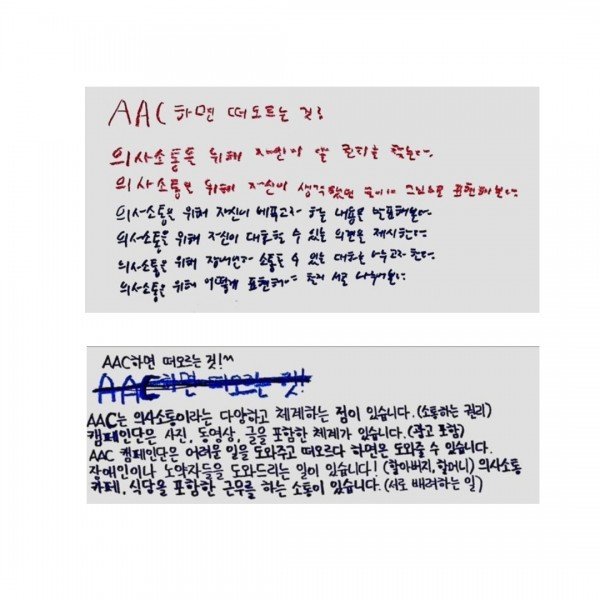 AAC하면 떠오르는 것!
의사소통을 위해 자신이 할 권리를 찾는다.
의사소통을 위해 자신이 생각했던 그림으로 표현해본다.
의사소통을 위해 자신이 발표하고자 하는 내용을 발표해본다.
의사소통을 위해 자신이 대화할 수 있는 의견을 제시한다.
의사소통을 위해 장애인과 소통할 수 있는 대화를 나누고자 한다.
의사소통을 위해 어떻게 표현하는 서로 나눠본다.
AAC하면 떠오르는 것!^^
AAC하면 떠오르는 것!
AAC는 의사소통이라는 다양하고 체계하는 점이 있습니다.(소통하는 권리)
캠페인단은 사진, 동영상, 글을 포함한 체계가 있습니다.(광고 포함)
AAC 캠페인단은 어려운 일을 도와주고 떠오르다 하면은 도와줄 수 있습니다.
장애인이나 노약자들을 도와드리는 일이 있습니다! (할아버지, 할머니) 의사소통
카페, 식당을 포함한 근무를 하는 소통이 있습니다.(서로 배려하는 일)